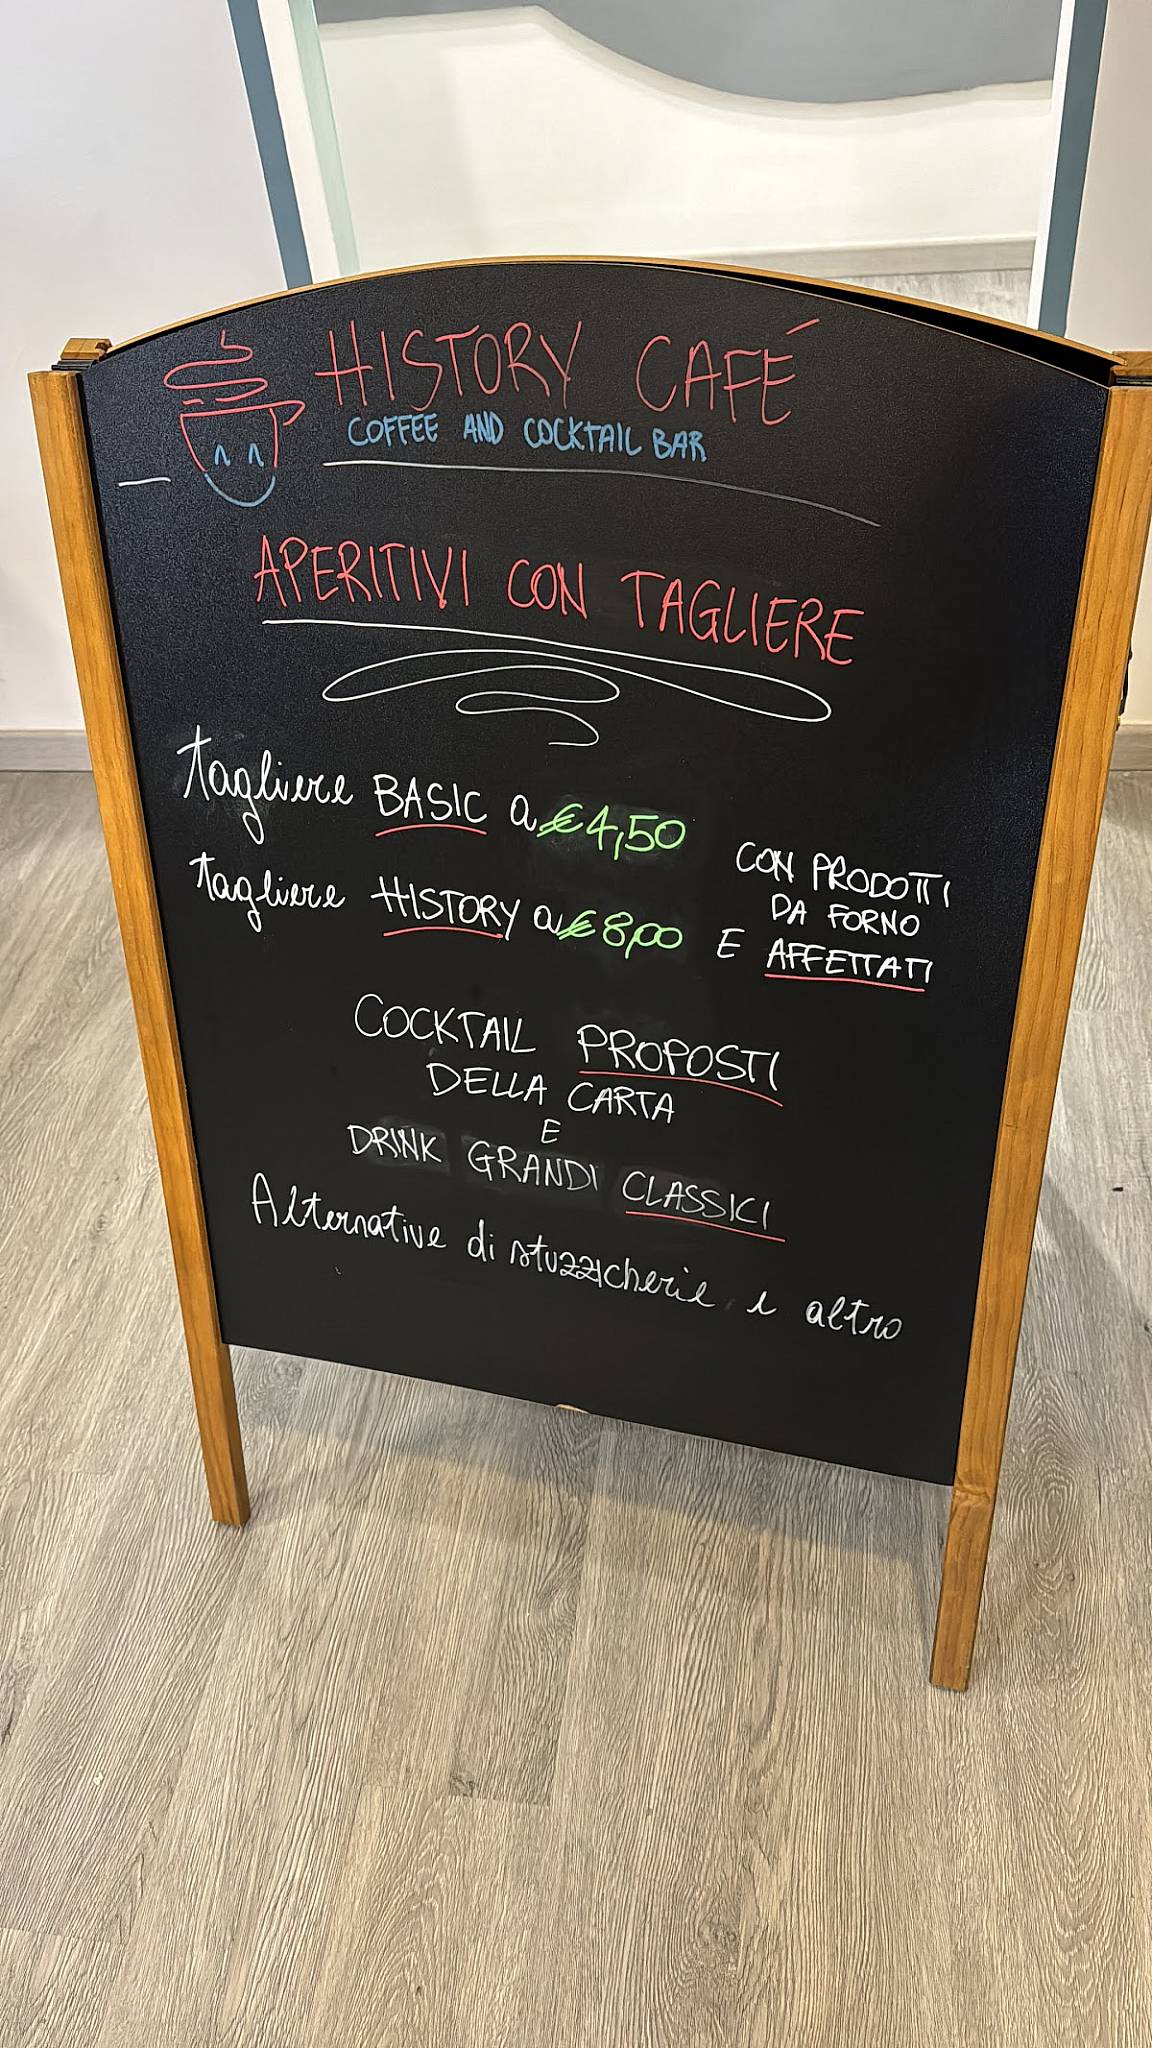 HISTORY CAFÉ
COFFEE AND COCKTAIL BAR
APERITIVI CON TAGLIERE
tagliere BASIC a € 4,50
tagliere HISTORY a € 8,00
CON PRODOTTI
DA FORNO
E AFFETTATI
COCKTAIL PROPOSTI
DELLA CARTA
E
DRINK GRANDI CLASSICI
Alternative di stuzzicherie e altro